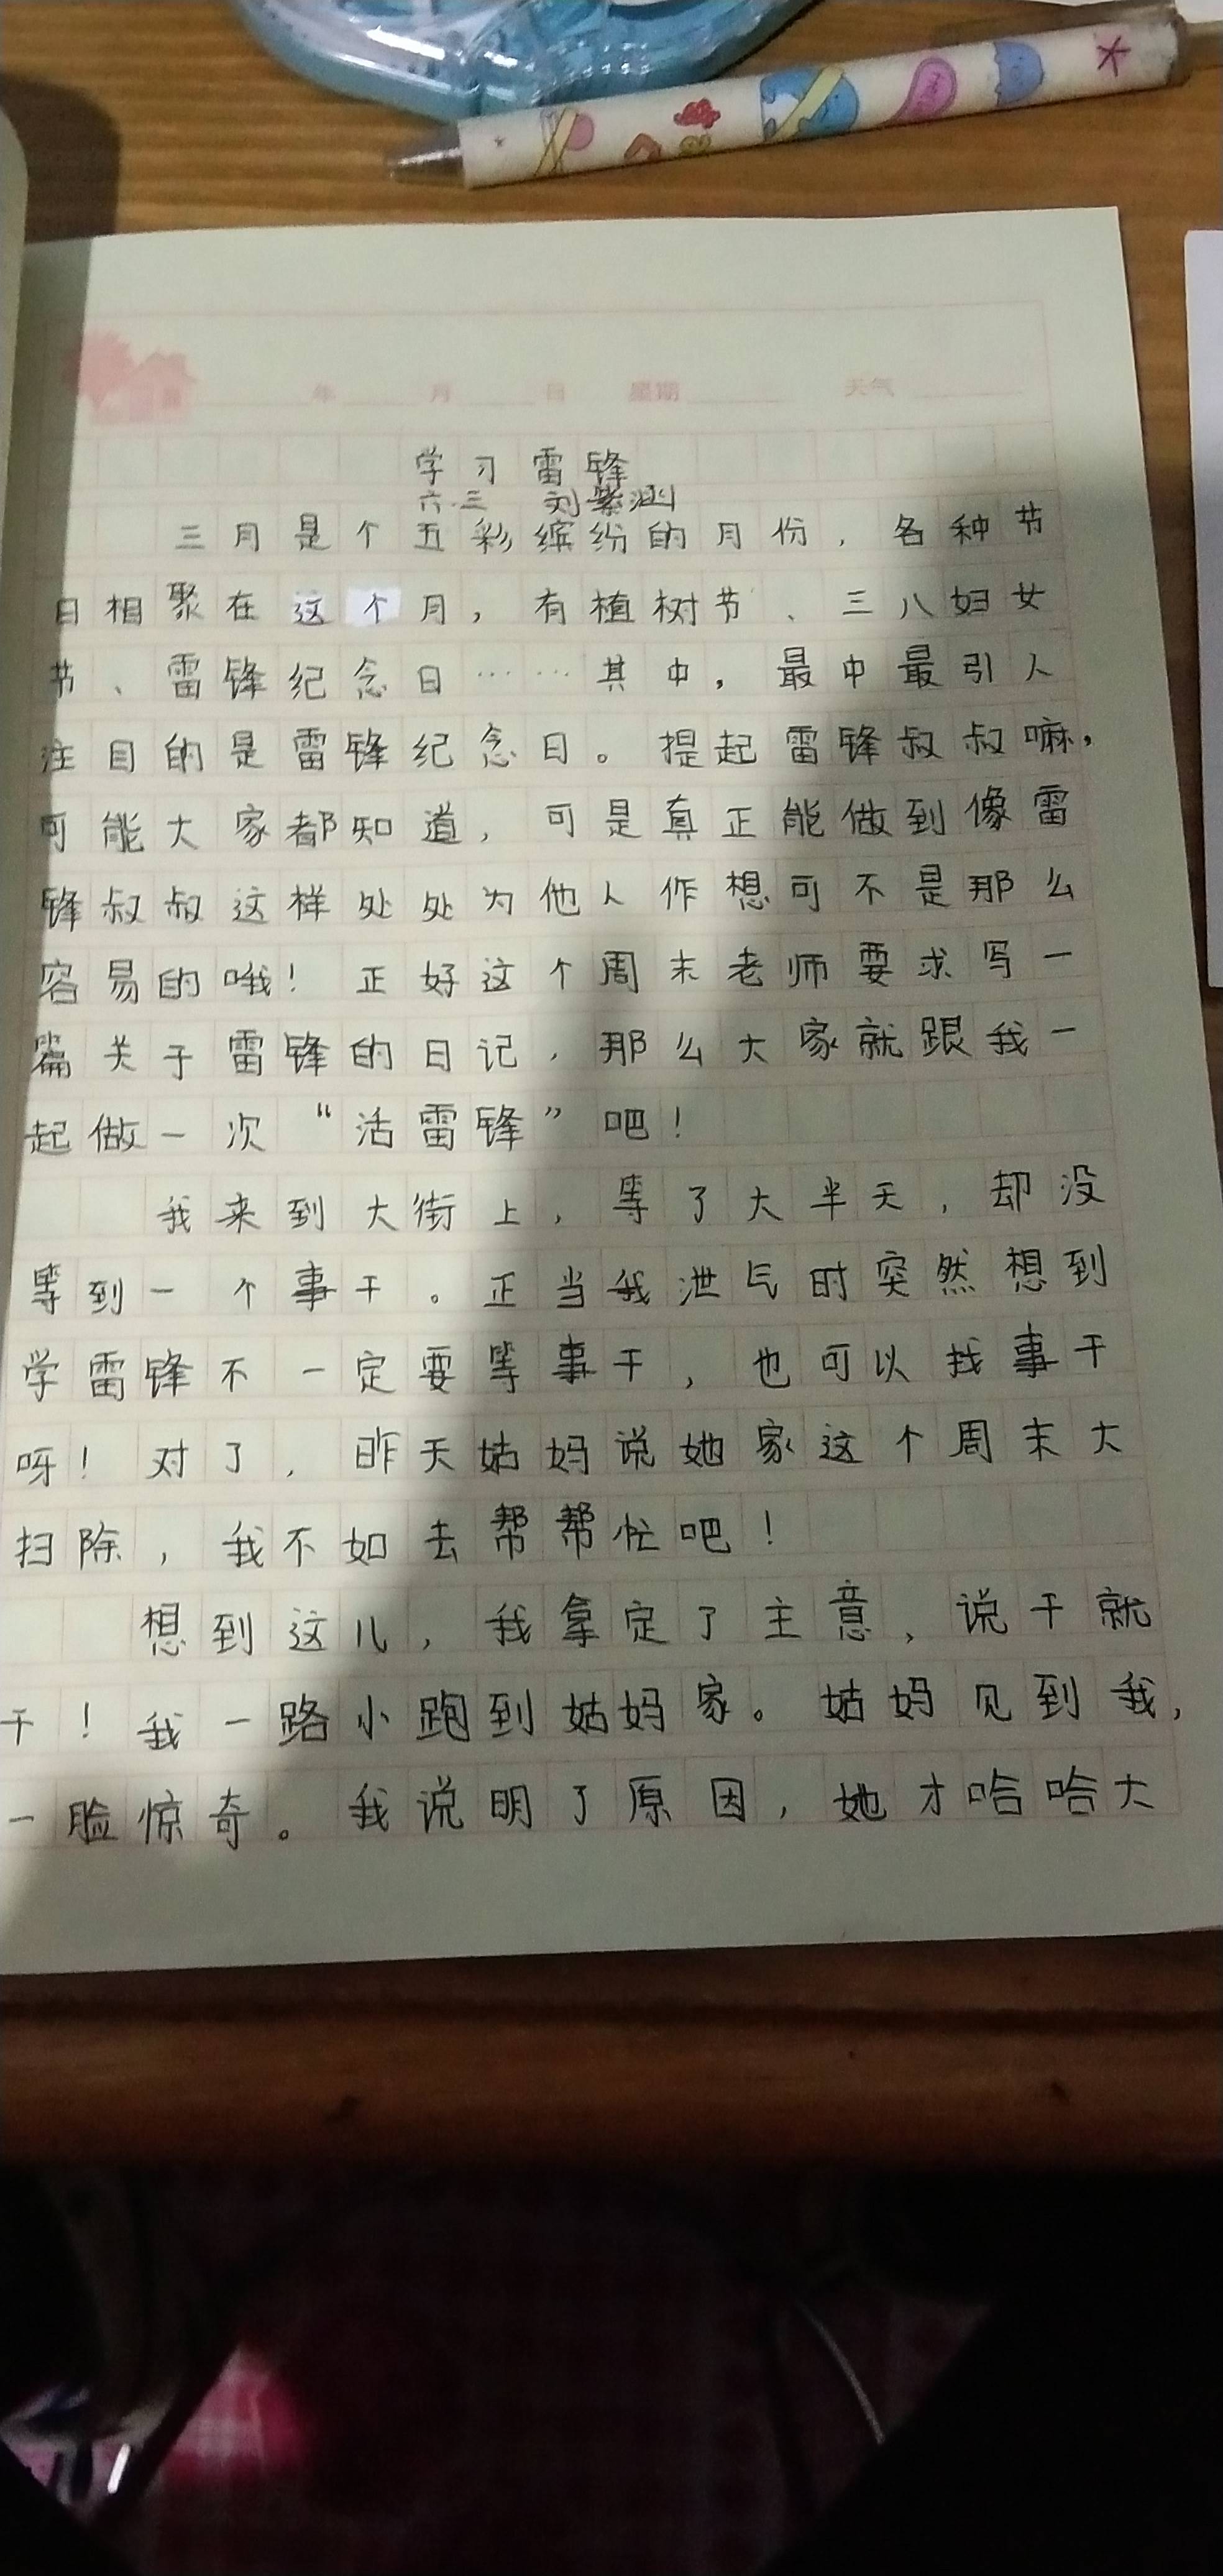 年 月 日 星期 天气
学习雷锋
六.三 刘紫涵
三月是个五彩缤纷的月份，各种节
日相聚在这个月，有植树节、三八妇女
节、雷锋纪念日……其中，最中最引人
注目的是雷锋纪念日。提起雷锋叔叔嘛，
可能大家都知道，可是真正能做到像雷
锋叔叔这样处处为他人作想可不是那么
容易的哦！正好这个周末老师要求写一
篇关于雷锋的日记，那么大家就跟我一
起做一次“活雷锋”吧！
我来到大街上，等了大半天，却没
等到一个事干。正当我泄气时突然想到
学雷锋不一定要等事干，也可以找事干
呀！对了，昨天姑妈说她家这个周末大
扫除，我不如去帮帮忙吧！
想到这儿，我拿定了主意，说干就
干！我一路小跑到姑妈家。姑妈见到我，
一脸惊奇。我说明了原因，她才哈哈大